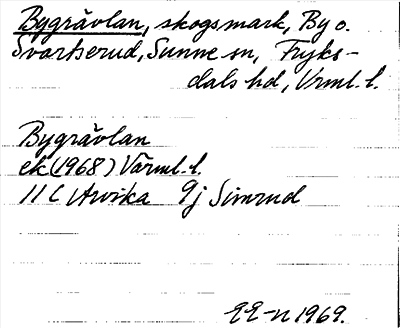 Bygrävlan, skogsmark, By o.
Svartserud, Sunne sn, Fryks-
dals hd, Värml. l.
Bygrävlan
ek (1968) Värml. l.
11 C Arvika 9j Simrud
EE-n 1969.